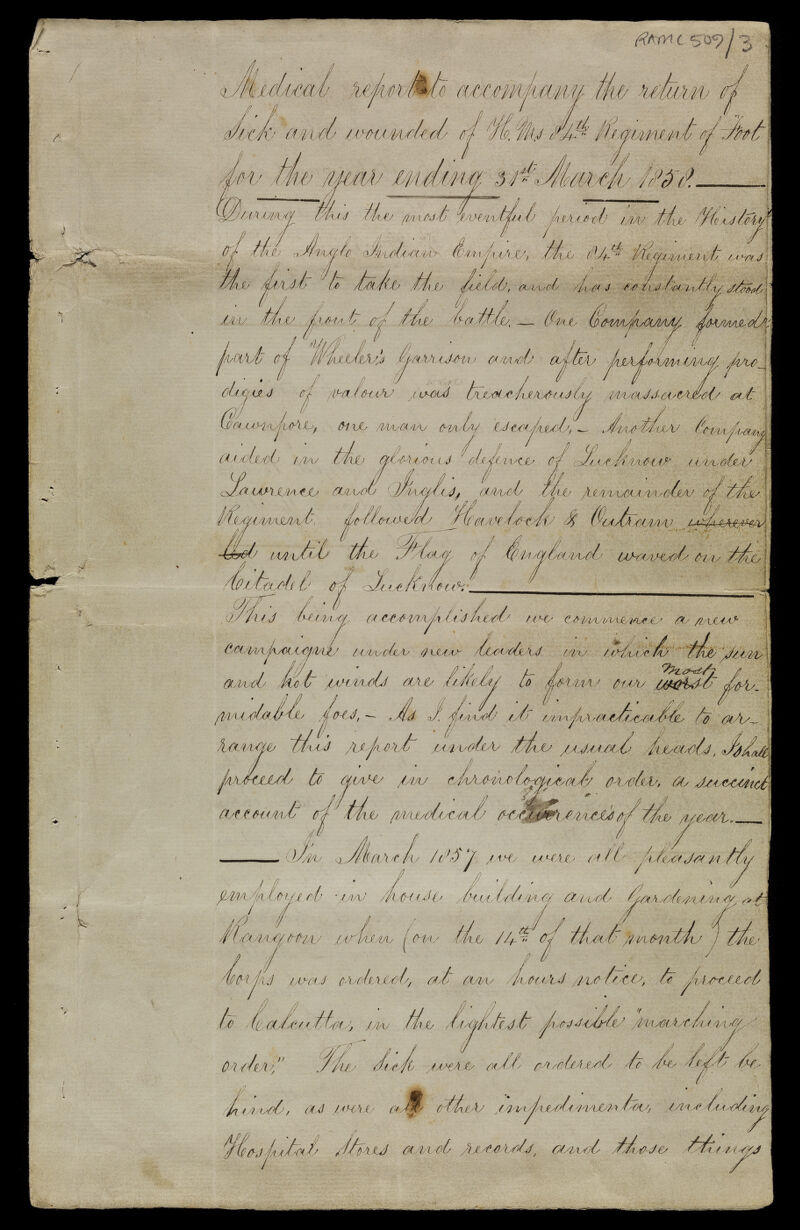 RAMC 509/3
Medical report to accompany the return of
Sick and wounded of H.Ms 84th Regiment of Foot
for the year ending 31st March 1858.
During this the most eventful period in the History
of the Anglo Indian Empire, the 84th Regiment was
the first to take the field, and has constantly stood
in the front of the battle. — One Company formed
part of Wheeler's Garrison and after performing pro-
digies of valour was treacherously massacred at
Cawnpore, one man only escaped. — Another Company
aided in the glorious defence of Lucknow under
Lawrence and Inglis, and the remainder of the
Regiment followed Havelock & Outram wherever
led until the Flag of England waved on the
Citadel of Lucknow.
This being accomplished we commence a new
campaigne under new leaders in which the sun
most
and hot winds are likely to form our worst for-
midable foes, — As I find it impracticable to ar-
range this report under the usual heads, I shall
proceed to give in chronological order, a succinct
account of the medical occurrences of the year. —
— In March 1857 we were all pleasantly
employed in house building and Gardening at
Rangoon when (on the 14th of that month) the
Corps was ordered, at an hours notice, to proceed
to Calcutta, in the lightest possible "marching
order." The Sick were all ordered to be left be
hind, as were all other impedimenta, including
Hospital Stores and records, and those things